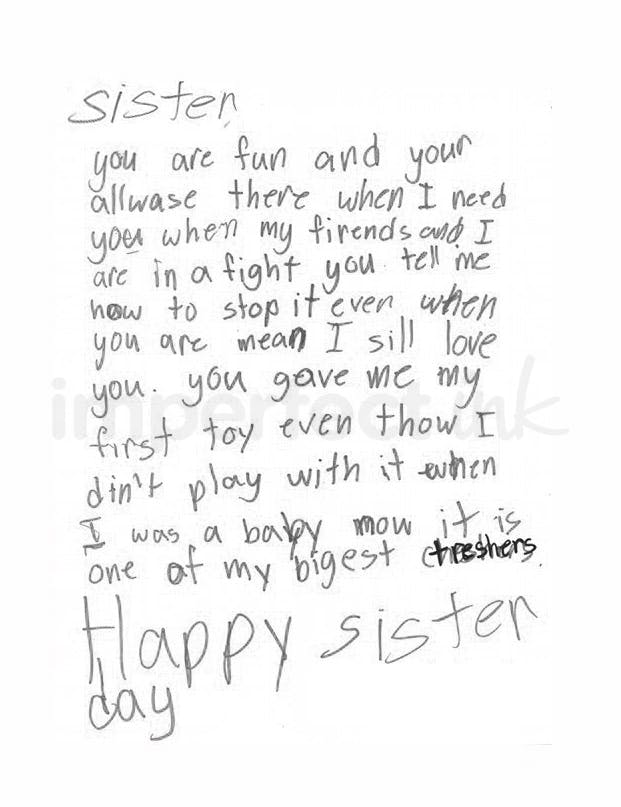 sister
you are fun and your
allwase there when I need
you when my firends and I
are in a fight you tell me
how to stop it even when
you are mean I sill love
you. you gave me my
first toy even thow I
din't play with it when
I was a baby mow it is
one of my bigest treshers.
Happy sister
day
imperfect ink